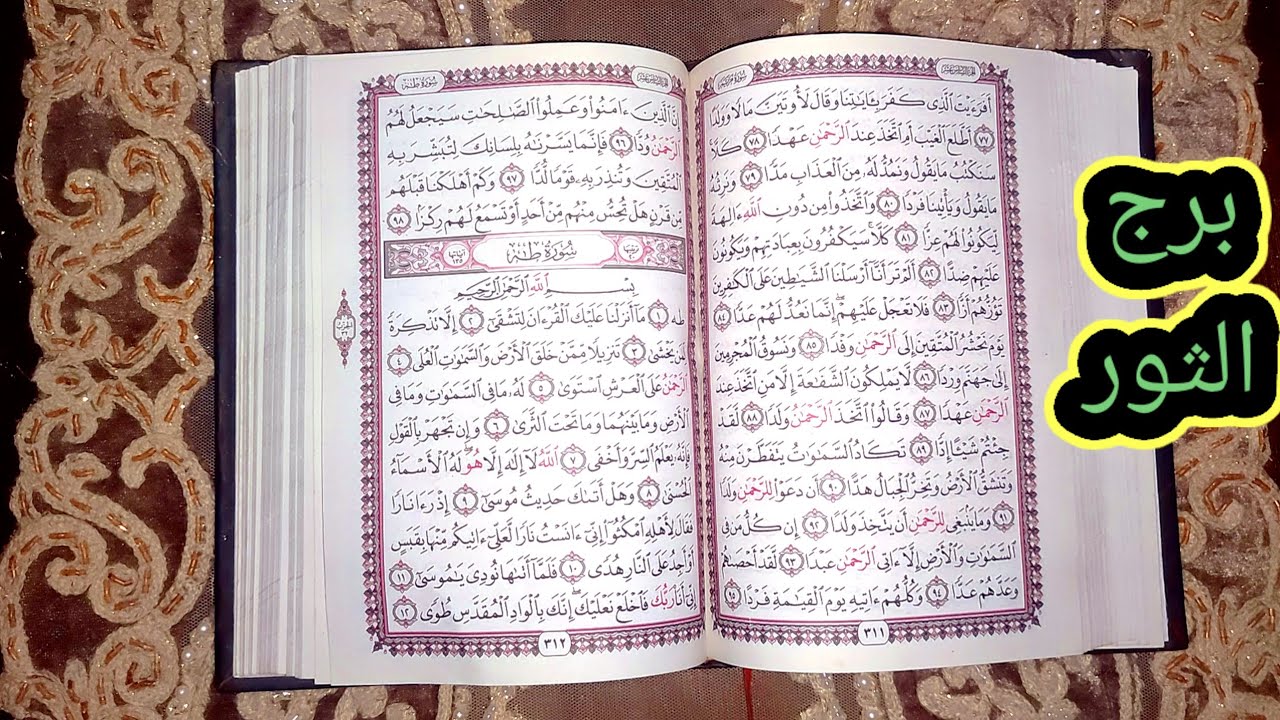 الجزء السادس عشر
سُورَةُ مَرْيَمَ
أَفَرَءَيْتَ ٱلَّذِى كَفَرَ بِـَٔايَٰتِنَا وَقَالَ لَأُوتَيَنَّ مَالًا وَوَلَدًا
٧٧ أَطَّلَعَ ٱلْغَيْبَ أَمِ ٱتَّخَذَ عِندَ ٱلرَّحْمَٰنِ عَهْدًا ٧٨ كَلَّا
سَنَكْتُبُ مَا يَقُولُ وَنَمُدُّ لَهُۥ مِنَ ٱلْعَذَابِ مَدًّا ٧٩ وَنَرِثُهُۥ
مَا يَقُولُ وَيَأْتِينَا فَرْدًا ٨٠ وَٱتَّخَذُوا۟ مِن دُونِ ٱللَّهِ ءَالِهَةً
لِّيَكُونُوا۟ لَهُمْ عِزًّا ٨١ كَلَّا سَيَكْفُرُونَ بِعِبَادَتِهِمْ وَيَكُونُونَ
عَلَيْهِمْ ضِدًّا ٨٢ أَلَمْ تَرَ أَنَّآ أَرْسَلْنَا ٱلشَّيَٰطِينَ عَلَى ٱلْكَٰفِرِينَ
تَؤُزُّهُمْ أَزًّا ٨٣ فَلَا تَعْجَلْ عَلَيْهِمْ إِنَّمَا نَعُدُّ لَهُمْ عَدًّا ٨٤
يَوْمَ نَحْشُرُ ٱلْمُتَّقِينَ إِلَى ٱلرَّحْمَٰنِ وَفْدًا ٨٥ وَنَسُوقُ ٱلْمُجْرِمِينَ
إِلَىٰ جَهَنَّمَ وِرْدًا ٨٦ لَّا يَمْلِكُونَ ٱلشَّفَٰعَةَ إِلَّا مَنِ ٱتَّخَذَ عِندَ
ٱلرَّحْمَٰنِ عَهْدًا ٨٧ وَقَالُوا۟ ٱتَّخَذَ ٱلرَّحْمَٰنُ وَلَدًا ٨٨ لَّقَدْ
جِئْتُمْ شَيْـًٔا إِدًّا ٨٩ تَكَادُ ٱلسَّمَٰوَٰتُ يَتَفَطَّرْنَ مِنْهُ
وَتَنشَقُّ ٱلْأَرْضُ وَتَخِرُّ ٱلْجِبَالُ هَدًّا ٩٠ أَن دَعَوْا۟ لِلرَّحْمَٰنِ وَلَدًا
٩١ وَمَا يَنۢبَغِى لِلرَّحْمَٰنِ أَن يَتَّخِذَ وَلَدًا ٩٢ إِن كُلُّ مَن فِى
ٱلسَّمَٰوَٰتِ وَٱلْأَرْضِ إِلَّآ ءَاتِى ٱلرَّحْمَٰنِ عَبْدًا ٩٣ لَّقَدْ أَحْصَىٰهُمْ
وَعَدَّهُمْ عَدًّا ٩٤ وَكُلُّهُمْ ءَاتِيهِ يَوْمَ ٱلْقِيَٰمَةِ فَرْدًا ٩٥
٣١١
الجزء السادس عشر
سُورَةُ طه
إِنَّ ٱلَّذِينَ ءَامَنُوا۟ وَعَمِلُوا۟ ٱلصَّٰلِحَٰتِ سَيَجْعَلُ لَهُمُ
ٱلرَّحْمَٰنُ وُدًّا ٩٦ فَإِنَّمَا يَسَّرْنَٰهُ بِلِسَانِكَ لِتُبَشِّرَ بِهِ
ٱلْمُتَّقِينَ وَتُنذِرَ بِهِۦ قَوْمًا لُّدًّا ٩٧ وَكَمْ أَهْلَكْنَا قَبْلَهُم
مِّن قَرْنٍ هَلْ تُحِسُّ مِنْهُم مِّنْ أَحَدٍ أَوْ تَسْمَعُ لَهُمْ رِكْزًۢا ٩٨
ترتيبها ٢٠ سُورَةُ طه آياتها ١٣٥
بِسْمِ ٱللَّهِ ٱلرَّحْمَٰنِ ٱلرَّحِيمِ
طه ١ مَآ أَنزَلْنَا عَلَيْكَ ٱلْقُرْءَانَ لِتَشْقَىٰٓ ٢ إِلَّا تَذْكِرَةً
لِّمَن يَخْشَىٰ ٣ تَنزِيلًا مِّمَّنْ خَلَقَ ٱلْأَرْضَ وَٱلسَّمَٰوَٰتِ ٱلْعُلَى ٤
ٱلرَّحْمَٰنُ عَلَى ٱلْعَرْشِ ٱسْتَوَىٰ ٥ لَهُۥ مَا فِى ٱلسَّمَٰوَٰتِ وَمَا فِى
ٱلْأَرْضِ وَمَا بَيْنَهُمَا وَمَا تَحْتَ ٱلثَّرَىٰ ٦ وَإِن تَجْهَرْ بِٱلْقَوْلِ
فَإِنَّهُۥ يَعْلَمُ ٱلسِّرَّ وَأَخْفَى ٧ ٱللَّهُ لَآ إِلَٰهَ إِلَّا هُوَ لَهُ ٱلْأَسْمَآءُ
ٱلْحُسْنَىٰ ٨ وَهَلْ أَتَىٰكَ حَدِيثُ مُوسَىٰٓ ٩ إِذْ رَءَا نَارًا
فَقَالَ لِأَهْلِهِ ٱمْكُثُوٓا۟ إِنِّىٓ ءَانَسْتُ نَارًا لَّعَلِّىٓ ءَاتِيكُم مِّنْهَا بِقَبَسٍ
أَوْ أَجِدُ عَلَى ٱلنَّارِ هُدًى ١٠ فَلَمَّآ أَتَىٰهَا نُودِىَ يَٰمُوسَىٰٓ ١١
إِنِّىٓ أَنَا۠ رَبُّكَ فَٱخْلَعْ نَعْلَيْكَ إِنَّكَ بِٱلْوَادِ ٱلْمُقَدَّسِ طُوًى ١٢
٣١٢
برج
الثور